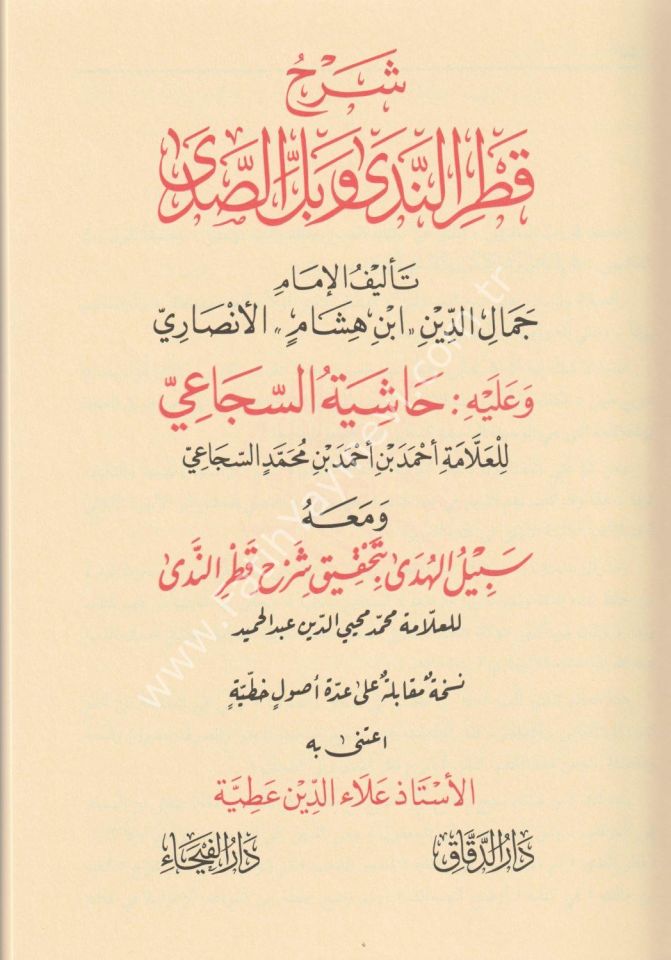 شَرْحُ
قَطْرِ النَّدَى وَبَلِّ الصَّدَى
تَأْلِيفُ الإِمَامِ
جَمَالِ الدِّينِ «ابْنِ هِشَامٍ» الأَنْصَارِيّ
وَعَلَيْهِ : حَاشِيَةُ السُّجَاعِيّ
لِلعَلَّامَةِ أَحْمَدَ بْنِ أَحْمَدَ بْنِ مُحَمَّدٍ السُّجَاعِيّ
وَمَعَهُ
سَبِيْلُ الهُدَى بِتَحْقِيْقِ شَرْحِ قَطْرِ النَّدَى
للعلامة محمّد محيي الدّين عبد الحميد
نسخةٌ مُقابلةٌ على عدّة أصولٍ خطيّةٍ
اعتنى به
الأُسْتَاذ عَلَاء الدِّيْن عَطِيَّة
دَارُ الدَّقَّاق
دَارُ الفَيْحَاء
www.fatihyayinevi.com.tr